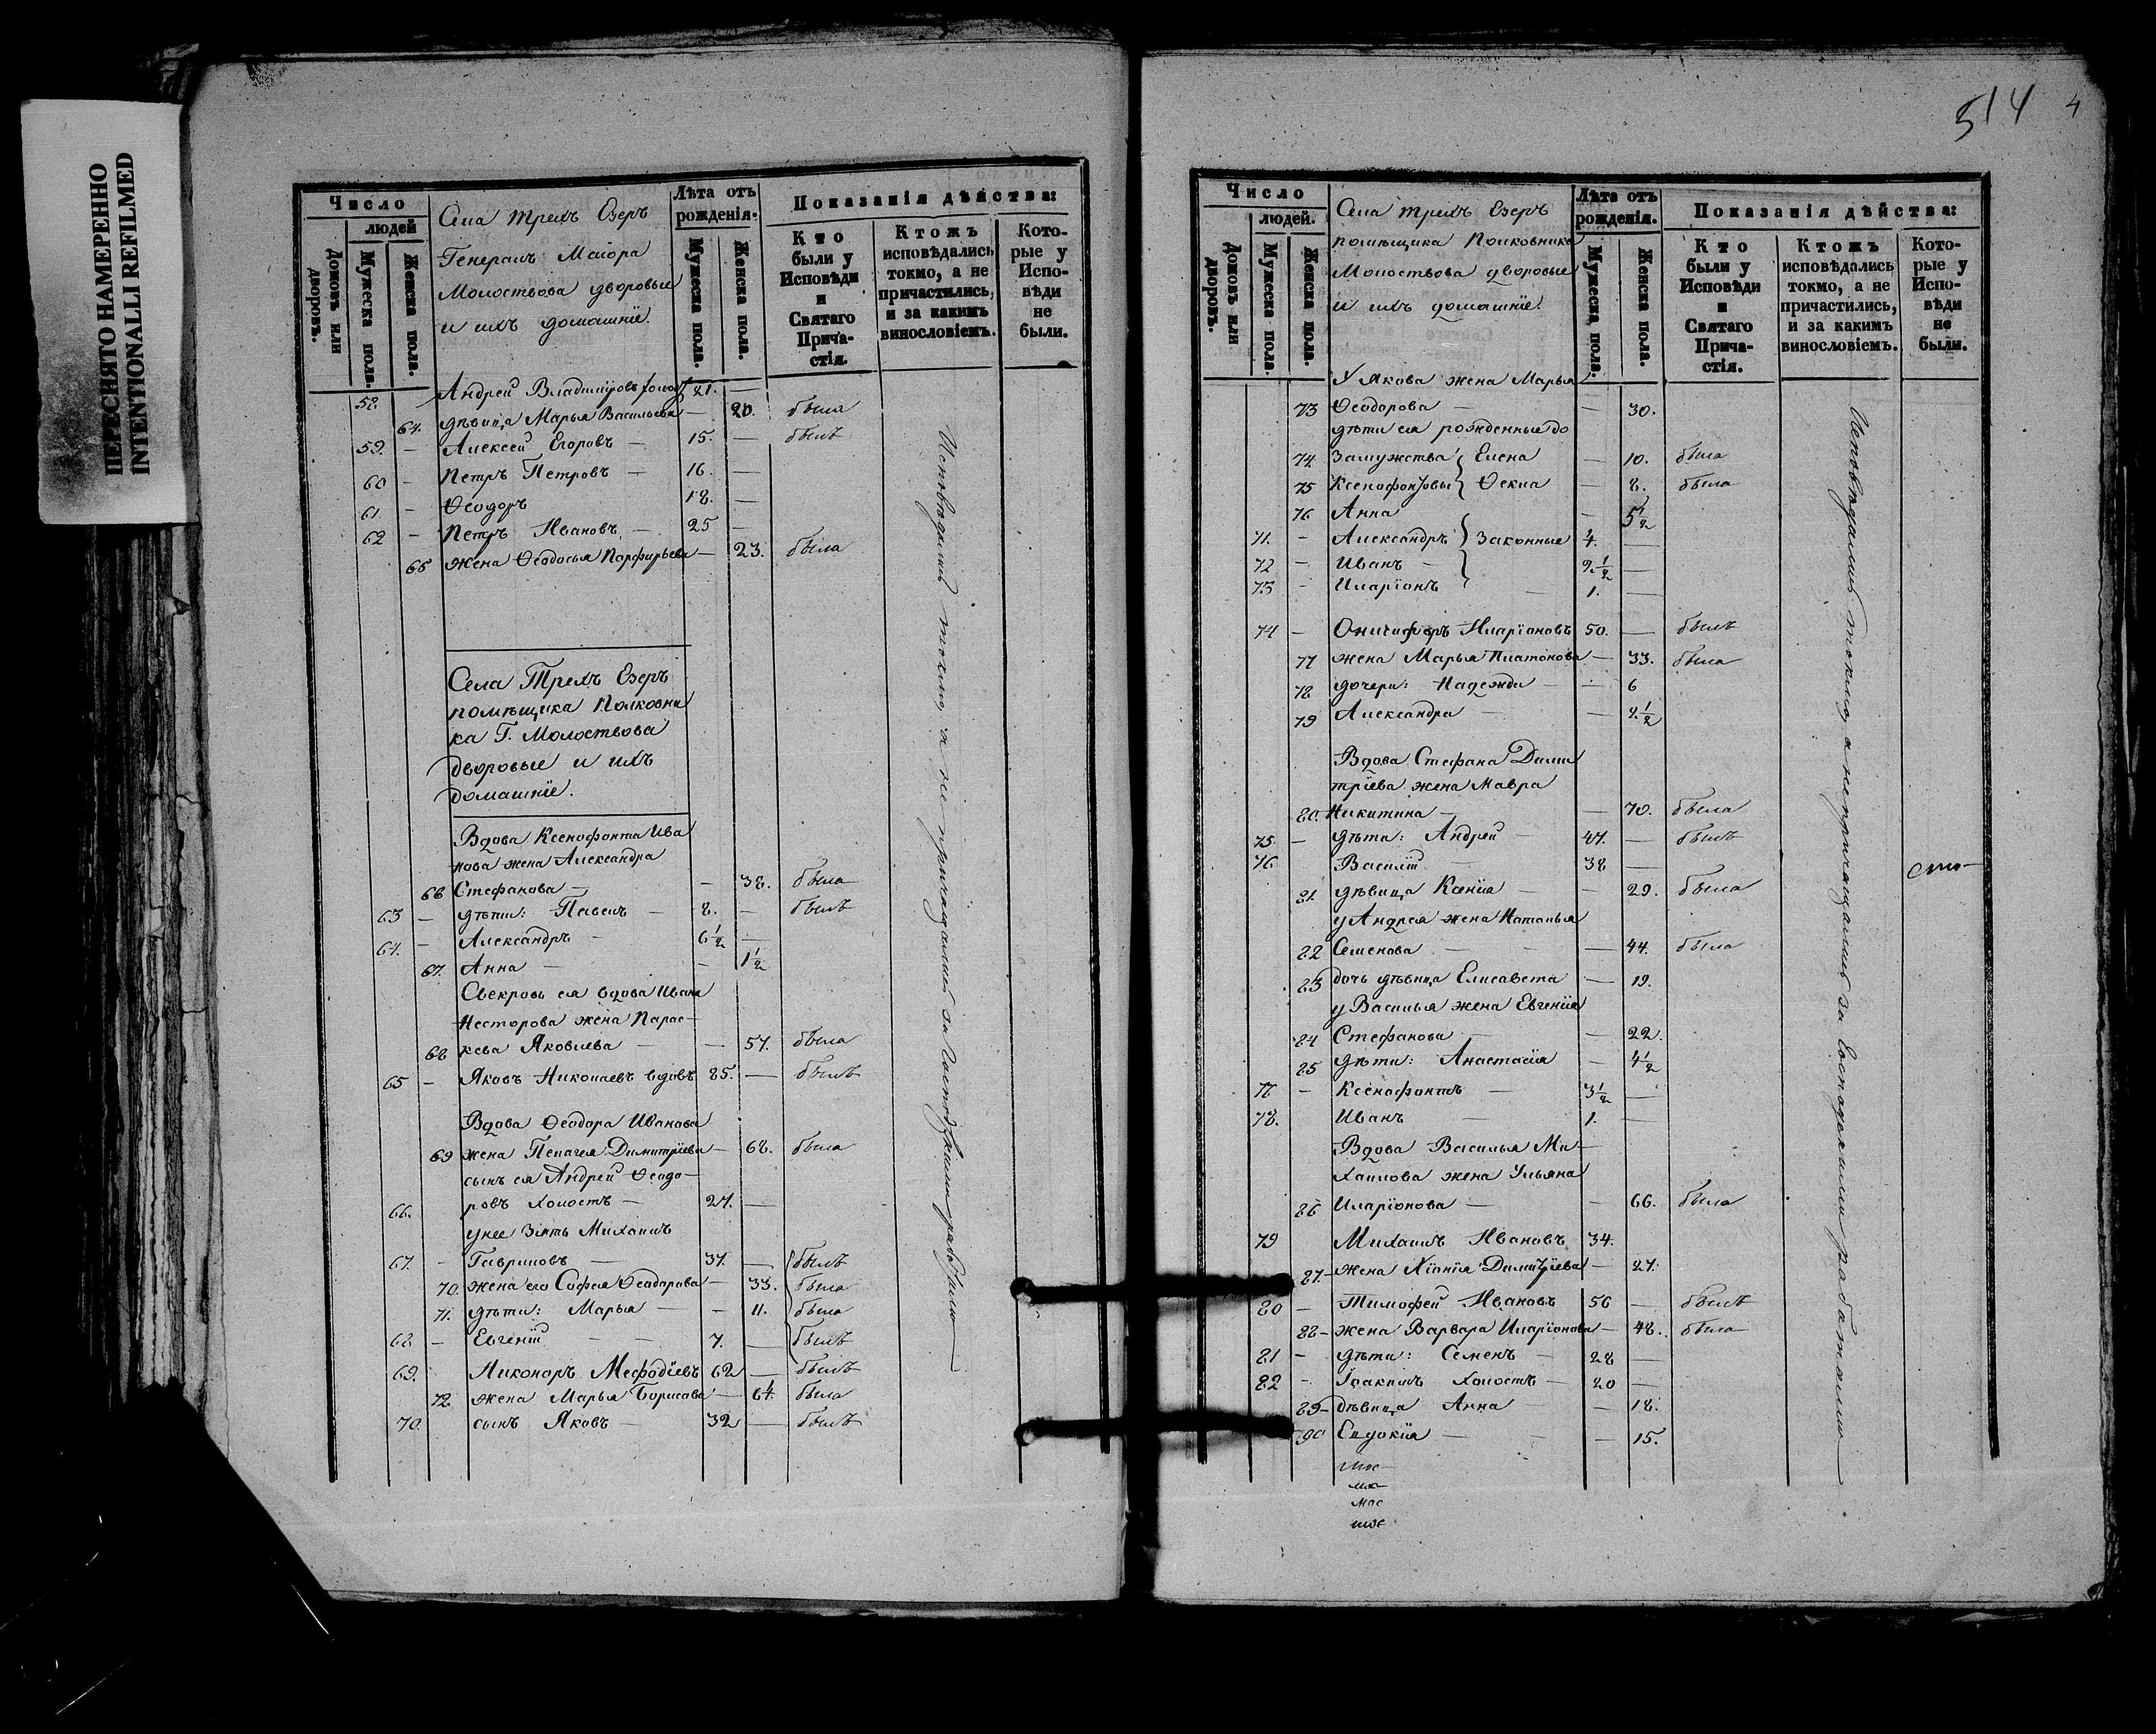 ПЕРЕСНЯТО НАМЕРЕННО
INTENTIONALLI REFILMED
Число
людей
Домовъ или дворовъ.
Мужеска пола.
Женска пола.
Села Трехъ Озеръ
Генералъ Маіора
Молоствова дворовые
и ихъ домашніе.
Лѣта отъ рожденія.
Мужеска пола.
Женска пола.
Показанія дѣйства:
Кто были у Исповѣди и Святаго Прича-стія.
Ктожъ исповѣдались токмо, а не причастились, и за какимъ винословіемъ.
Кото-рые у Испо-вѣди не были.
58. Андрей Владиміровъ холост 21. —
64. дѣвица Марья Васильева — 20. была
59. — Алексей Егоровъ — 15. — былъ
60 — Петръ Петровъ — 16. —
61. — Ѳеодоръ 18. —
62 — Петръ Ивановъ — 25 —
65 жена Ѳеодосья Порфирьева — 23. была
Села Трехъ Озеръ
помѣщика Полковни
ка Г. Молоствова
дворовые и ихъ
домашніе.
Вдова Ксенофонта Ива
нова жена Александра
66 Стефанова — — 38. была
63 — дѣти: Павелъ — 8. — былъ
64. — Александръ — 6 1/2 —
67. Анна — — 1 1/2
Свекровь ея вдова Ивана
Несторова жена Парас-
68 кева Яковлева — — 57. была
65 — Яковъ Николаевъ вдовъ 85. — былъ
Вдова Ѳеодора Иванова
69 жена Пелагея Димитріева — 68. была
сынъ ея Андрей Ѳеодо-
66. ровъ холостъ — 27. —
у нее зять Михаилъ
67. — Гавриловъ — 37. — былъ
70. жена его Софья Ѳеодорова — 33. была
71. дѣти: Марья — — 11. была
68. — Евгеній — — 7. — былъ
69. Никоноръ Меѳодіевъ 62 — былъ
72. жена Марья Борисова — 64. была
70. сынъ Яковъ — 32 — былъ
Исповѣдались токмо, а не причащались за Господскими работами —
514 4
Число
людей.
Домовъ или дворовъ.
Мужеска пола.
Женска пола.
Села Трехъ Озеръ
помѣщика Полковника
Молоствова дворовые
и ихъ домашніе.
Лѣта отъ рожденія.
Мужеска пола.
Женска пола.
Показанія дѣйства:
Кто были у Исповѣди и Святаго Прича-стія.
Ктожъ исповѣдались токмо, а не причастились, и за какимъ винословіемъ.
Кото-рые у Испо-вѣди не были.
У Якова жена Марья
73 Ѳеодорова — — 30.
дѣти ея рожденные до
74. замужства Елена — 10. была
75 Ксенофонтовы Ѳекла — 8. была
76. Анна — 5 1/2
71. — Александръ Законные 4. —
72 — Иванъ — 2 1/2 —
73 — Иларіонъ — 1. —
74 — Онисифоръ Иларіоновъ 50. — былъ
77 жена Марья Платонова — 33. была
78 дочери: Надежда — — 6
79 Александра — — 2 1/2
Вдова Стефана Дими
тріева жена Мавра
80. Никитина — — 70. была
75. — дѣти: Андрей — 47. — былъ
76 Василій — 38 —
81. дѣвица Ксенія — — 29. была
у Андрея жена Наталья
82 Семенова — — 44. была
83 дочь дѣвица Елисавета — 19.
у Василья жена Евгенія
84 Стефанова — — 22.
85 дѣти: Анастасія — 4 1/2
77 — Ксенофонтъ — 3 1/2 —
78. Иванъ — 1. —
Вдова Василья Ми-
хаилова жена Ульяна
86 Иларіонова — — 66. была
79 Михаилъ Ивановъ 34.
87. жена Хіонія Димитріева — 27.
80 — Тимофей Ивановъ 56 — былъ
88 — жена Варвара Иларіонова — 48. была
81 — дѣти: Семенъ — 28 —
82 — Іоакимъ холостъ — 20 —
89 — дѣвица Анна — — 18.
90 Евдокія — — 15.
Исповѣдались токмо, а не причащались за Господскими работами —